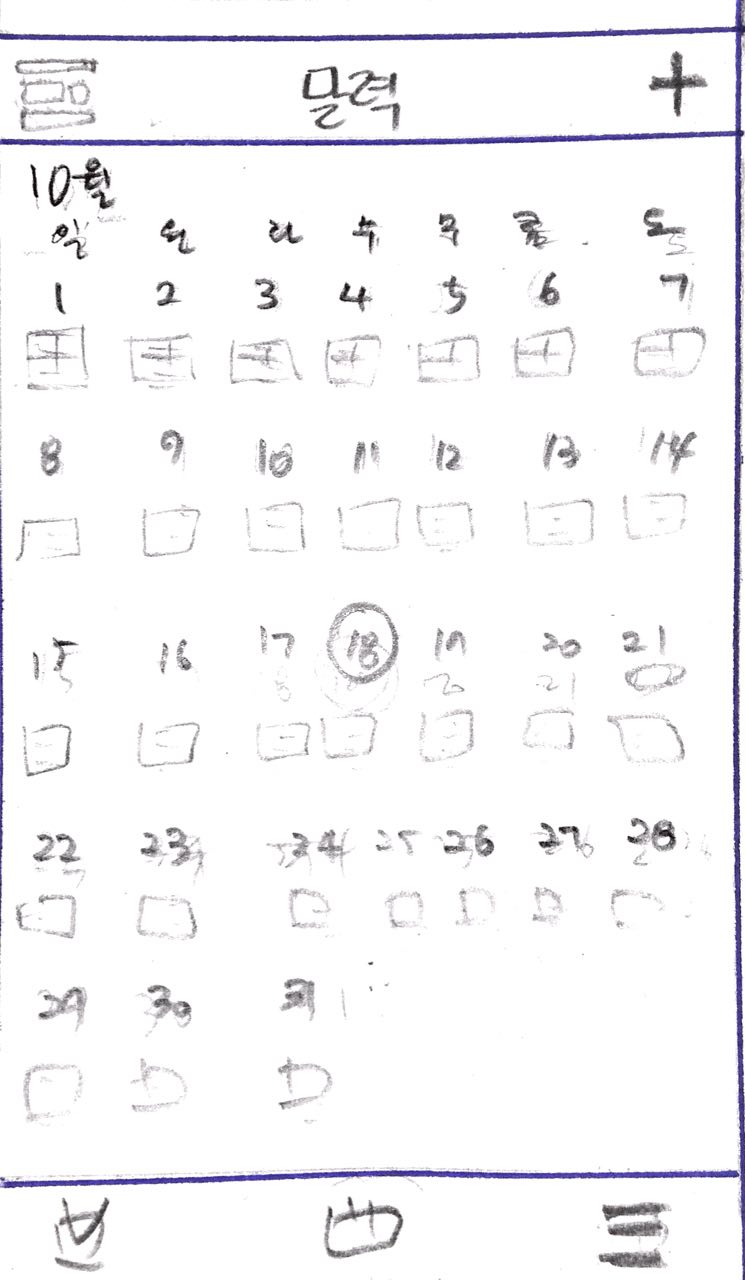 달력 +
10월
일 월 화 수 목 금 토
1 2 3 4 5 6 7
8 9 10 11 12 13 14
15 16 17 18 19 20 21
22 23 24 25 26 27 28
29 30 31